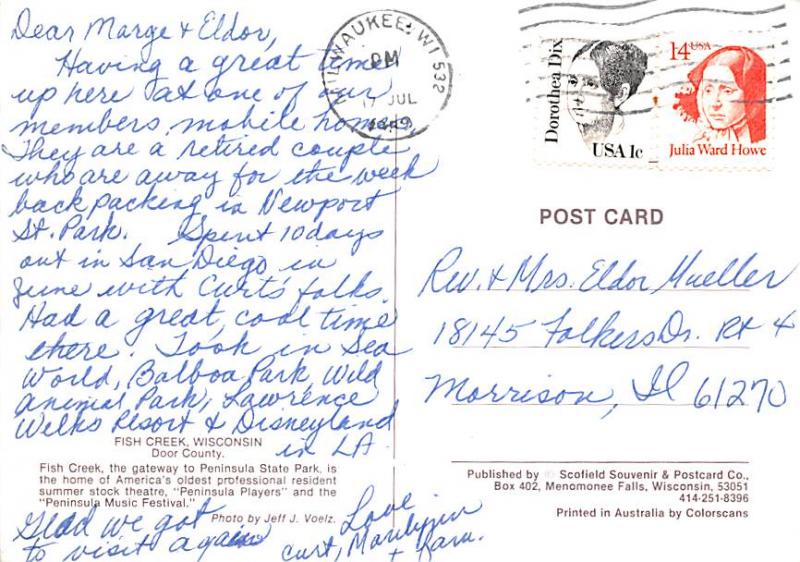 Dear Marge & Eldor,
Having a great time
up here at one of our
members mobile homes.
They are a retired couple
who are away for the week
backpacking in Newport
St. Park. Spent 10 days
out in San Diego in
June with Curt's folks.
Had a great, cool time
there. Took in Sea
World, Balboa Park, Wild
Animal Park, Lawrence
Welks Resort & Disneyland
in LA
FISH CREEK, WISCONSIN
Door County.
Fish Creek, the gateway to Peninsula State Park, is
the home of America's oldest professional resident
summer stock theatre, "Peninsula Players" and the
"Peninsula Music Festival."
Photo by Jeff J. Voelz.
Glad we got
to visit again
Love
Curt, Marilynn
+
MILWAUKEE, WI 532
PM
17 JUL
1989
Dorothea Dix
USA 1c
14 USA
Julia Ward Howe
POST CARD
Rev. & Mrs. Eldor Mueller
18145 Folkers Dr. Rt 4
Morrison, Il 61270
Published by Scofield Souvenir & Postcard Co.,
Box 402, Menomonee Falls, Wisconsin, 53051
414-251-8396
Printed in Australia by Colorscans